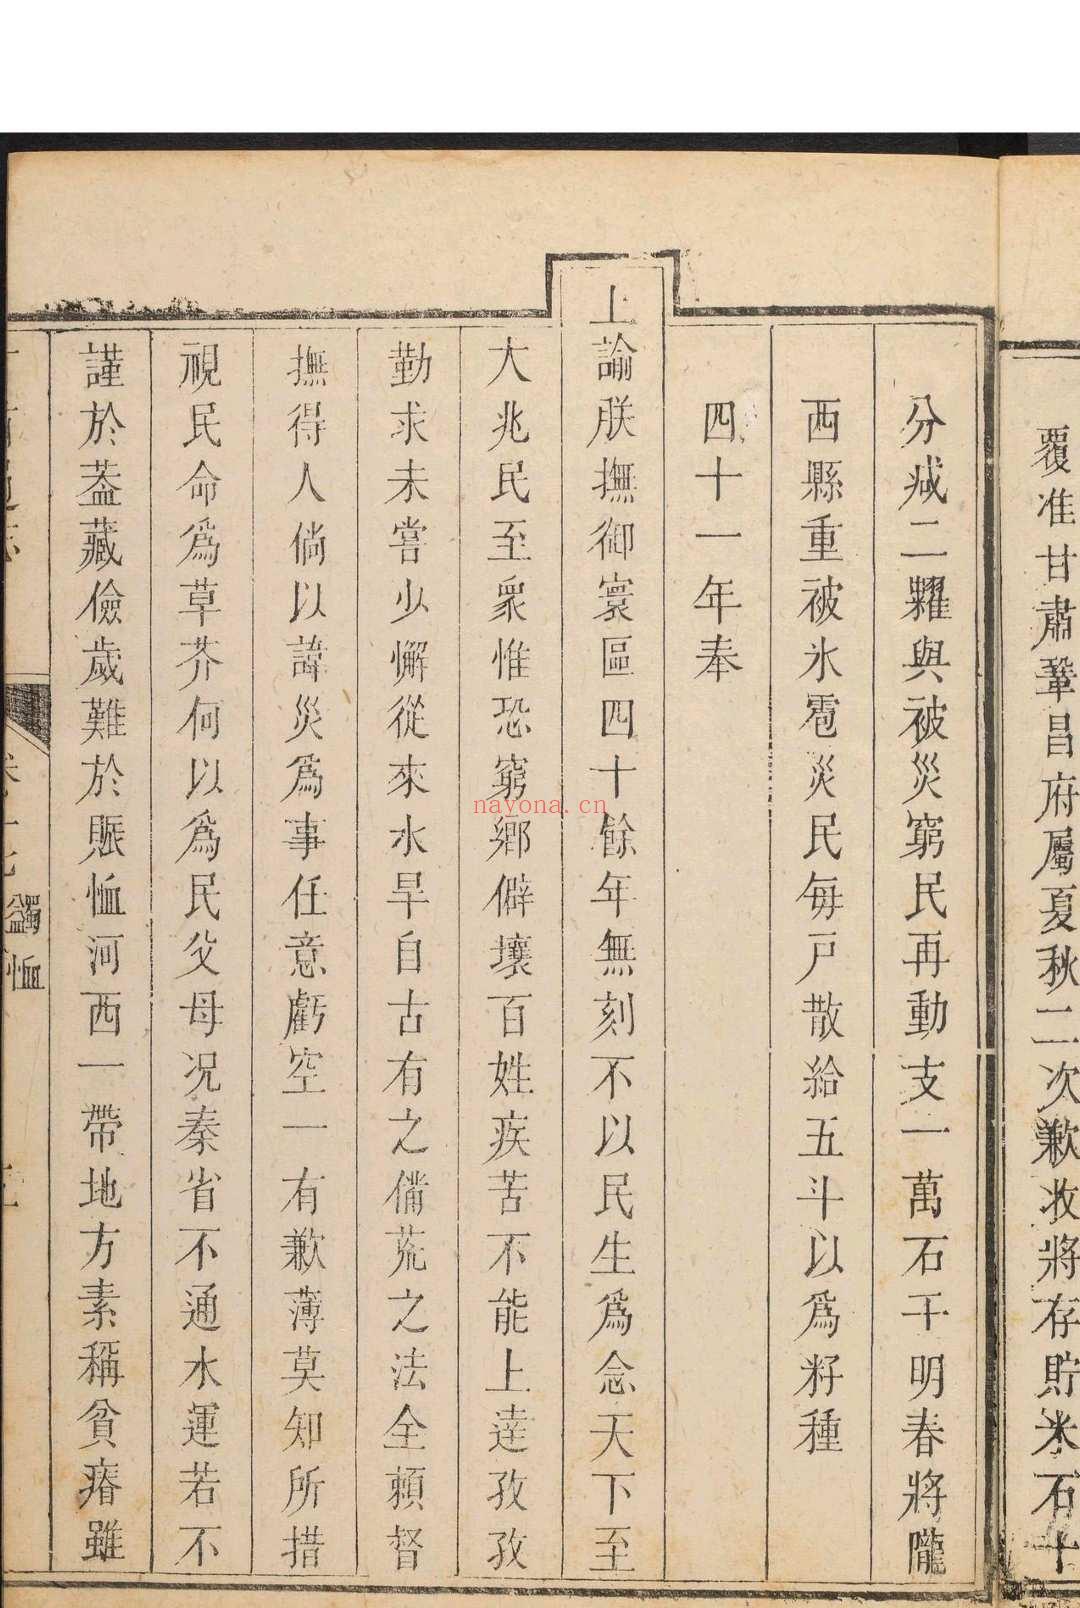 覆准甘肅鞏昌府屬夏秋二次歉收將存貯米石十
分减二糶與被災窮民再動支一萬石于明春將隴
西縣重被氷雹災民每戸散給五斗以爲籽種
四十一年奉
上諭朕撫御寰區四十餘年無刻不以民生爲念天下至
大兆民至衆惟恐窮鄉僻壤百姓疾苦不能上達孜孜
勤求未嘗少懈從來水旱自古有之備荒之法全賴督
撫得人倘以諱災爲事任意虧空一有歉薄莫知所措
視民命爲草芥何以爲民父母况秦省不通水運若不
謹於葢藏儉歲難於賑恤河西一帶地方素稱貧瘠雖
蠲恤
nayona.cn